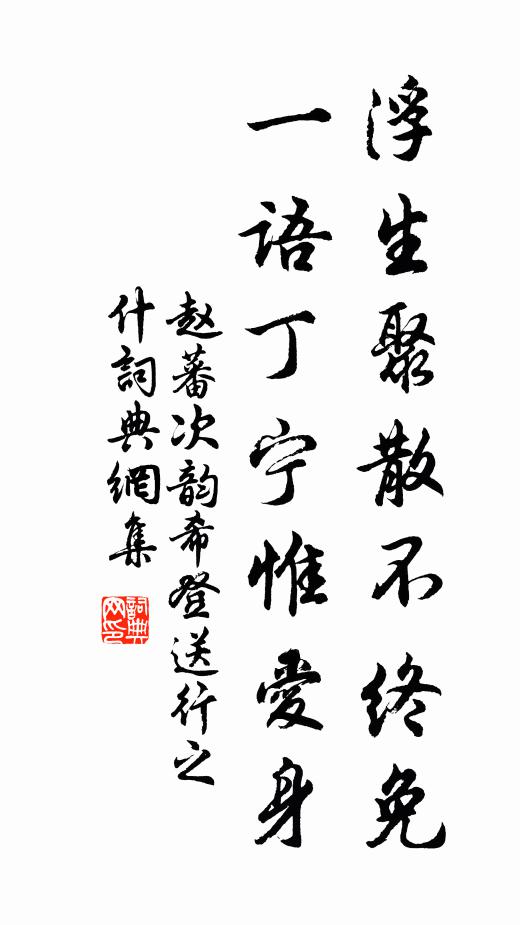 浮生聚散不终免
一语丁宁惟愛身
赵蕃次韵希登送行之
什詞典網集
詞典
网印